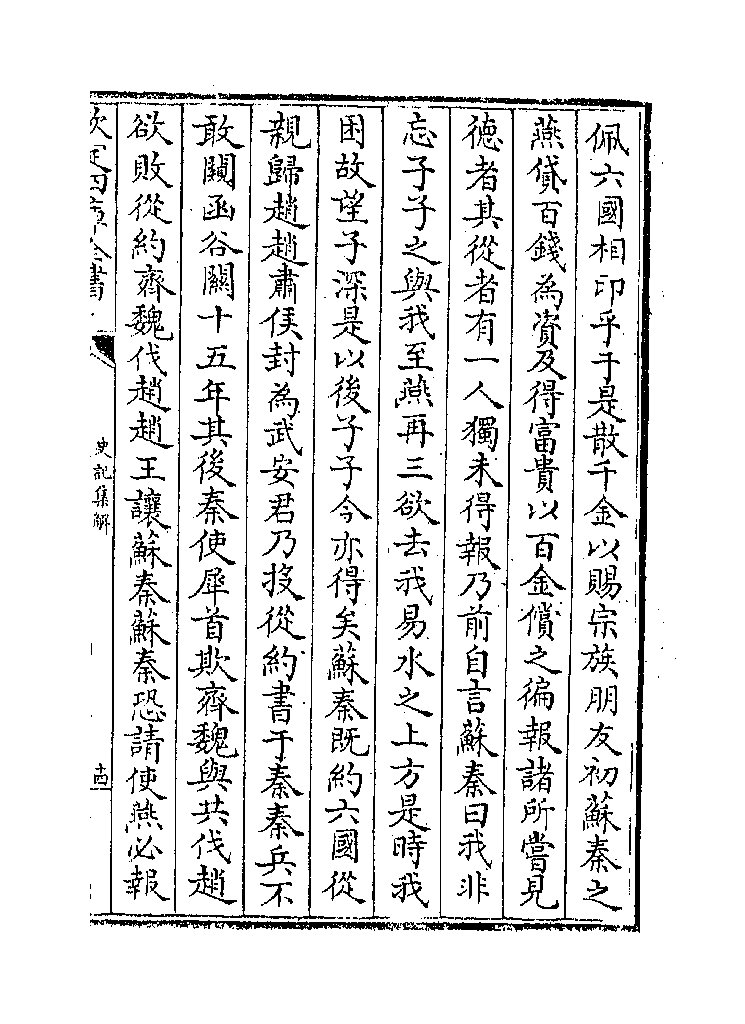 佩六國相印乎于是散千金以賜宗族朋友初蘇秦之
燕貸百錢為資及得富貴以百金償之徧報諸所嘗見
徳者其從者有一人獨未得報乃前自言蘇秦曰我非
忘子子之與我至燕再三欲去我易水之上方是時我
困故望子深是以後子子今亦得矣蘇秦既約六國從
親歸趙趙肅侯封為武安君乃投從約書于秦秦兵不
敢闚函谷關十五年其後秦使犀首欺齊魏與共伐趙
欲敗從約齊魏伐趙趙王讓蘇秦蘇秦恐請使燕必報
欽定四庫全書
史記集解
十四